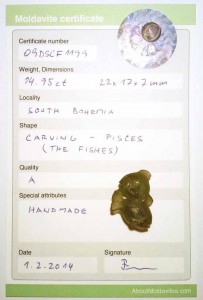 Moldavite certificate
Certificate number
09DSCF1199
Weight, Dimensions
14.95ct 22x17x7mm
Locality
SOUTH BOHEMIA
Shape
CARVING - PISCES
(THE FISHES)
Quality
A
Special attributes
HANDMADE
Date
Signature
1.2.2014
AboutMoldavites.com